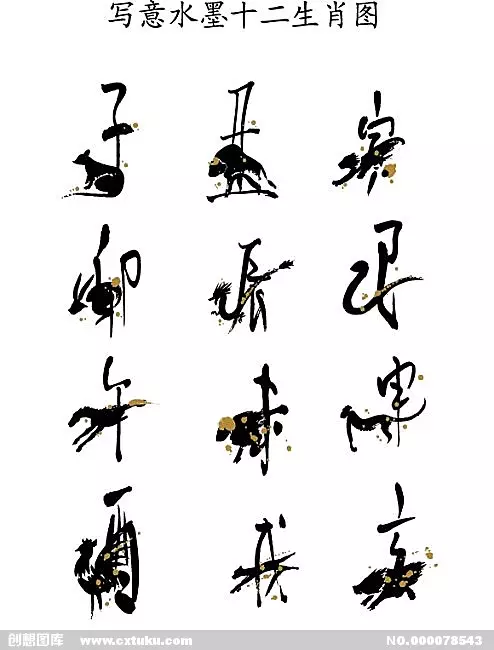 写意水墨十二生肖图
子 丑 寅
卯 辰 巳
午 未 申
酉 戌 亥
创想图库 www.cxtuku.com NO.000078543